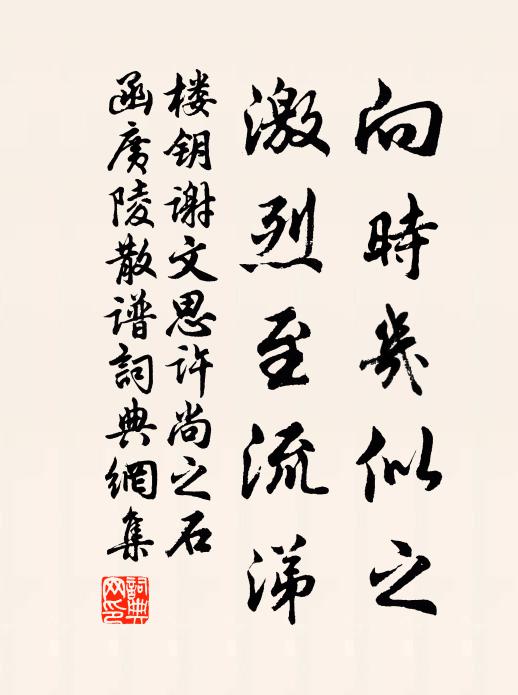 向時幾似之
激烈至流涕
楼钥谢文思许尚之石
函廣陵散谱詞典網集
詞典网印